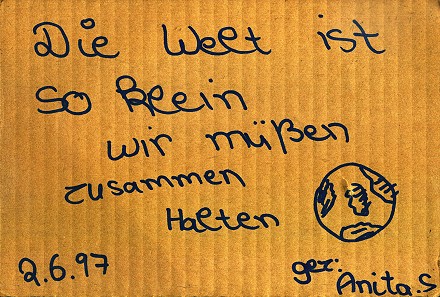 Die Welt ist
so klein
wir müßen
zusammen
Halten
2.6.97
gez:
Anita.S